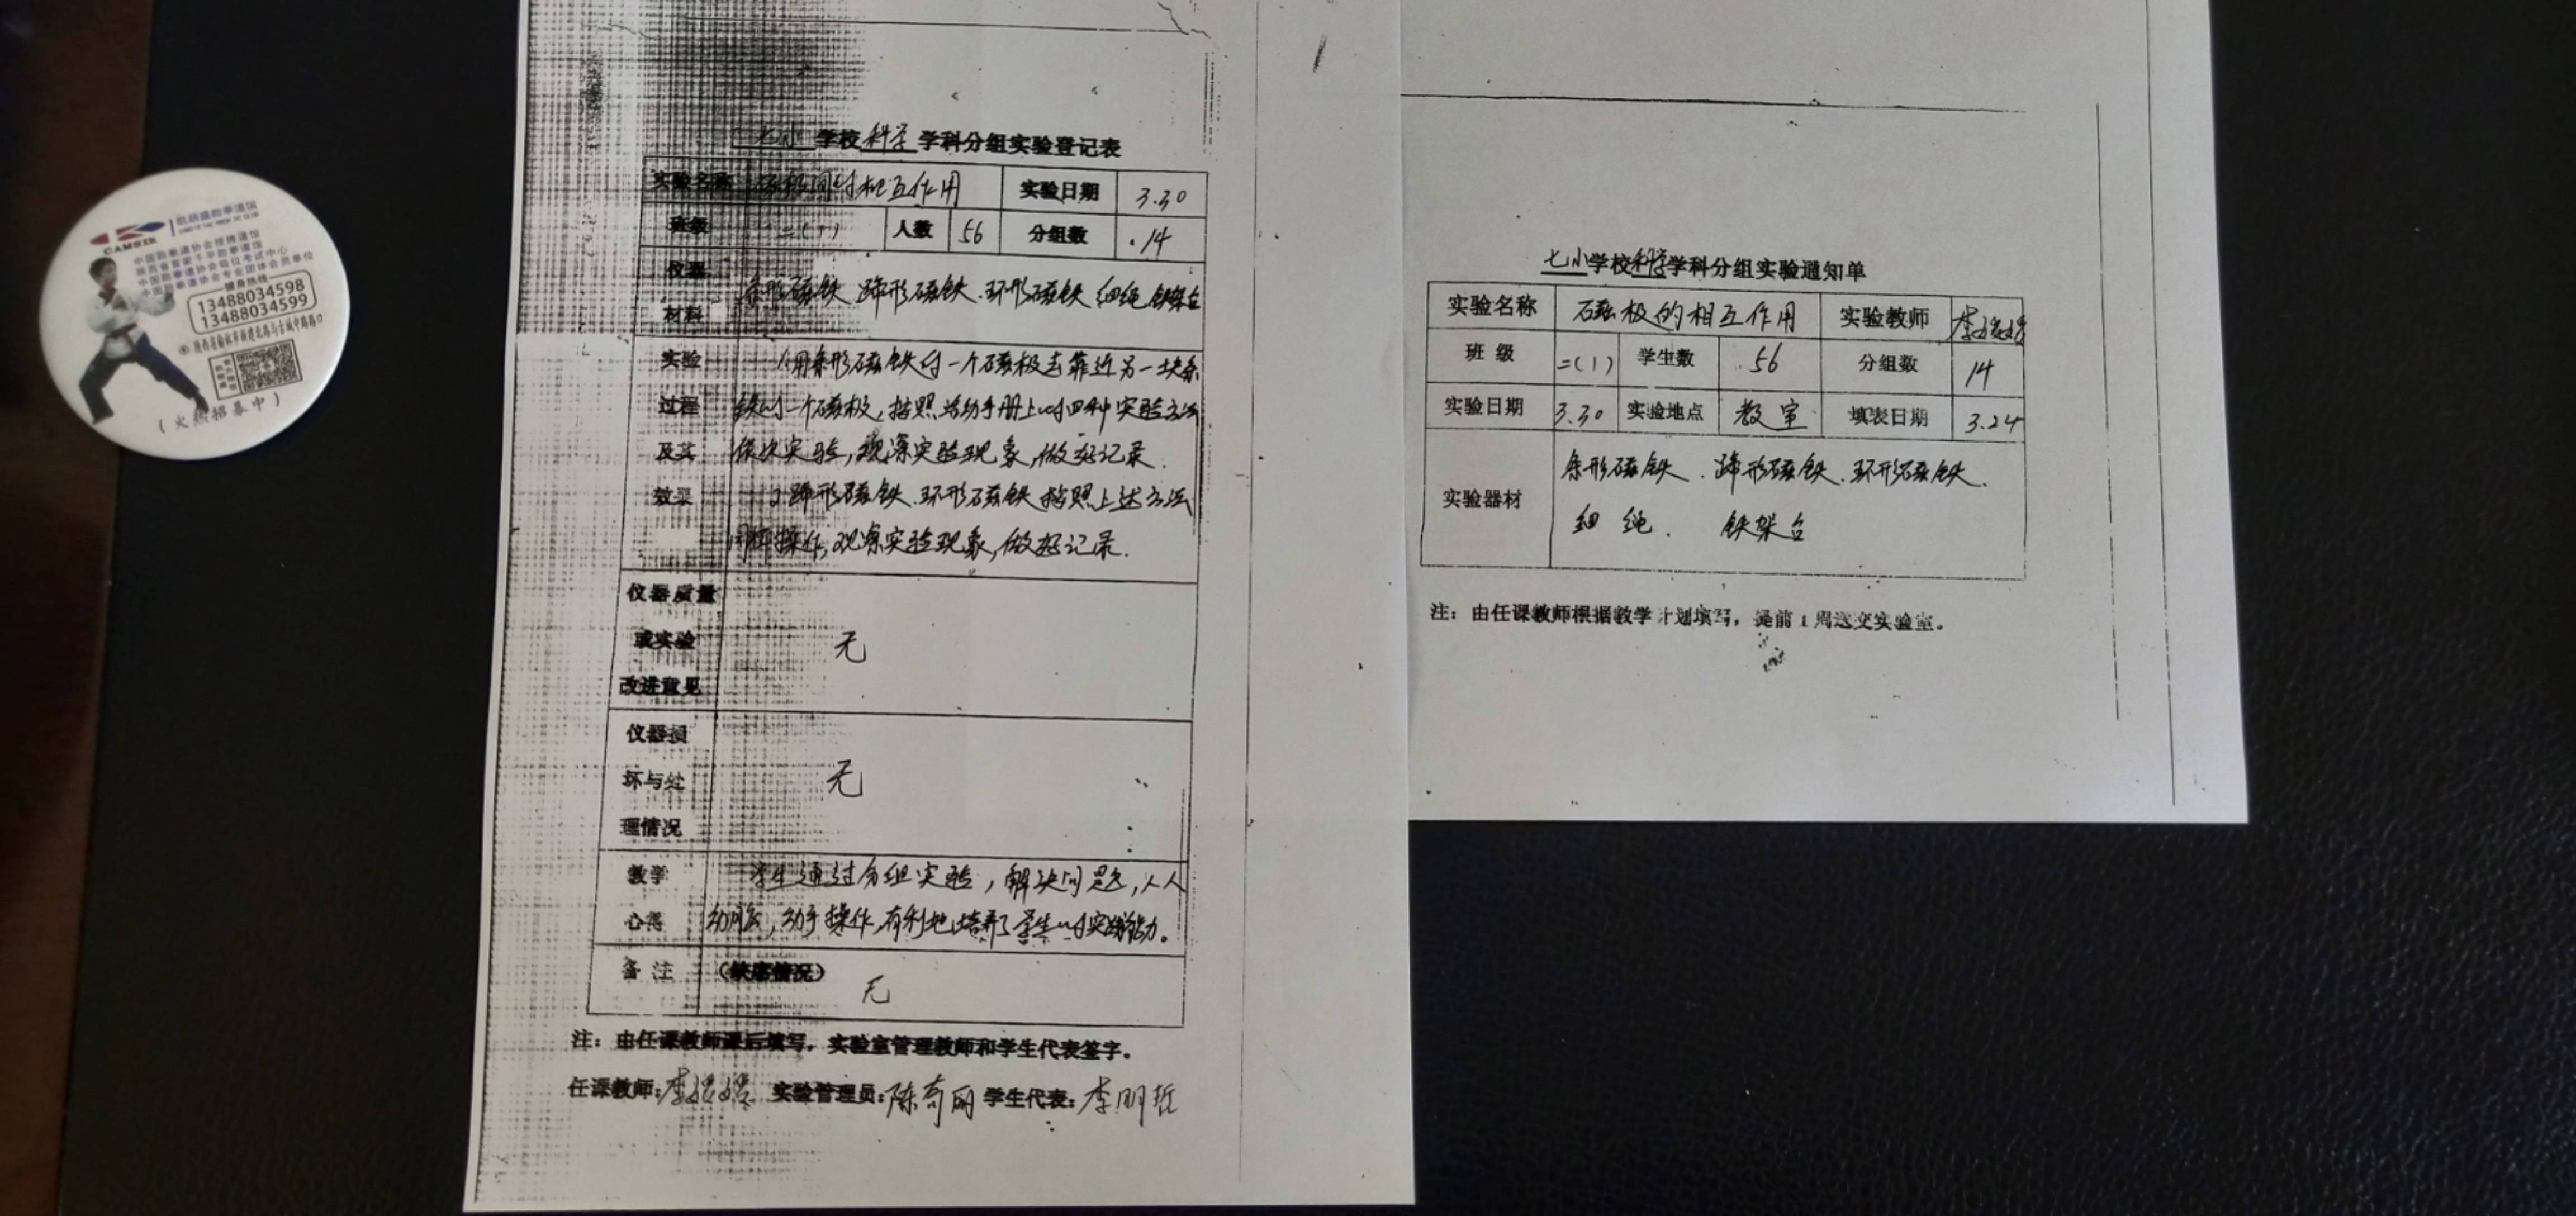 凯跆盛跆拳道馆
CAMBZK
中国跆拳道协会授牌道馆
陕西省首家千平跆拳道馆
中国跆拳道协会段位考试中心
中国跆拳道协会专业团体会员单位
健身热线
13488034598
13488034599
陕西省榆林市新建北路与古城中路路口
（火热招募中）
七小学校科学学科分组实验登记表
实验名称 磁极间的相互作用 实验日期 3.30
班级 二(1) 人数 56 分组数 14
仪器材料 条形磁铁 蹄形磁铁.环形磁铁 细绳 铁架台
实验过程及其效果
1.用条形磁铁的一个磁极去靠近另一块条
铁的一个磁极,按照活动手册上的四种实验方法
依次实验,观察实验现象,做好记录.
2.蹄形磁铁.环形磁铁按照上述方法
同样操作,观察实验现象,做好记录.
仪器质量或实验改进意见 无
仪器损坏与处理情况 无
教学心得 学生通过分组实验,解决问题,人人
动脑,动手操作,有利地培养了学生的实践能力。
备注 （缺席情况） 无
注：由任课教师课后填写，实验室管理教师和学生代表签字。
任课教师: 李 实验管理员:陈奇丽 学生代表:李明哲
七小学校科学学科分组实验通知单
实验名称 磁极的相互作用 实验教师 李
班级 二(1) 学生数 56 分组数 14
实验日期 3.30 实验地点 教室 填表日期 3.24
实验器材 条形磁铁.蹄形磁铁.环形磁铁.
细绳. 铁架台
注：由任课教师根据教学计划填写，提前1周送交实验室。